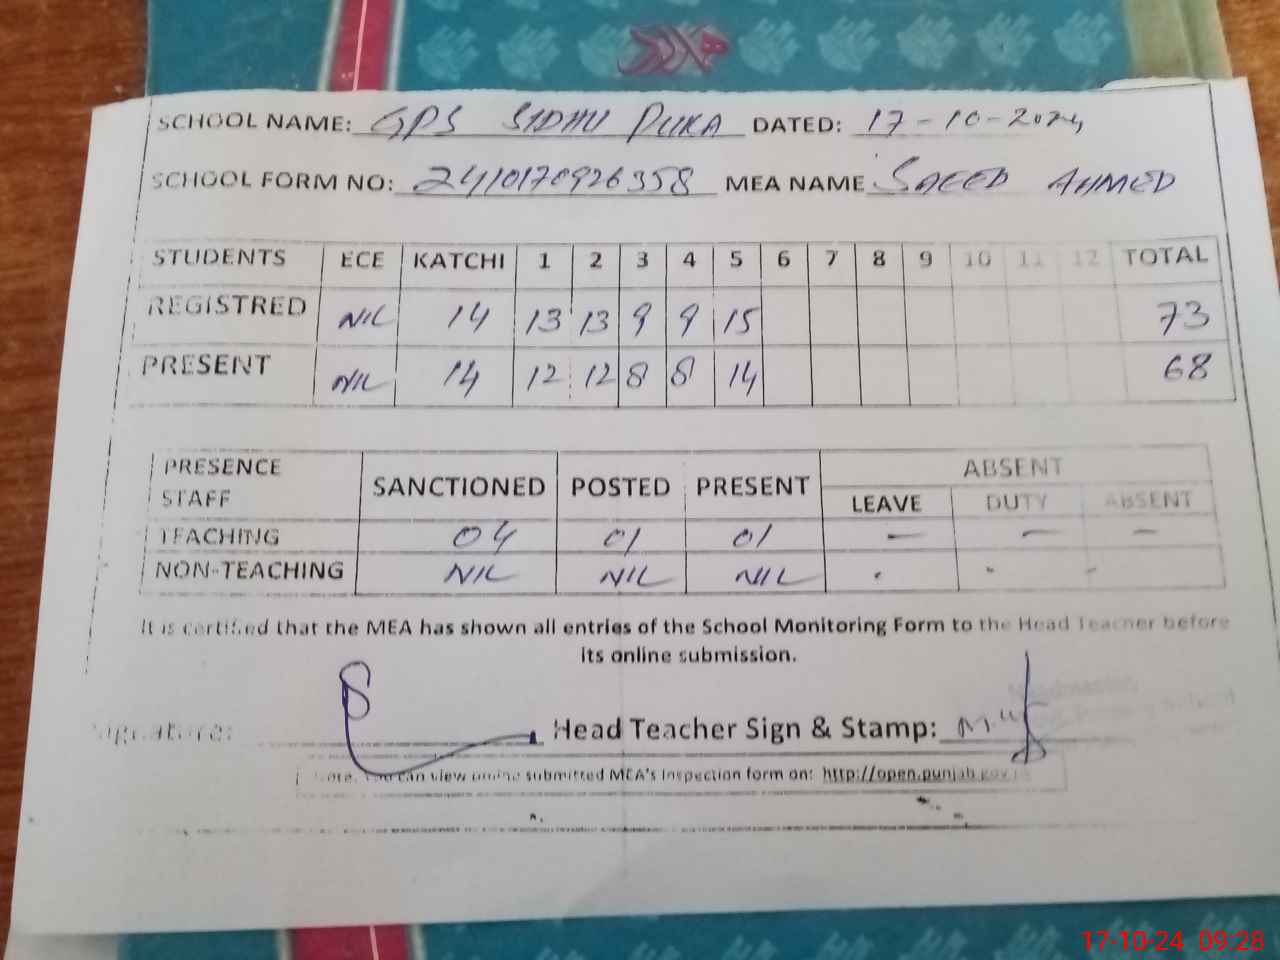 SCHOOL NAME: GPS SIDHU PUKA DATED: 17-10-2024
SCHOOL FORM NO: 2410170926358 MEA NAME SAEED AHMED
STUDENTS ECE KATCHI 1 2 3 4 5 6 7 8 9 10 11 12 TOTAL
REGISTRED NIL 14 13 13 9 9 15 73
PRESENT NIL 14 12 12 8 8 14 68
PRESENCE STAFF SANCTIONED POSTED PRESENT ABSENT
LEAVE DUTY ABSENT
TEACHING 04 01 01 — — —
NON-TEACHING NIL NIL NIL - - -
It is certified that the MEA has shown all entries of the School Monitoring Form to the Head Teacher before
its online submission.
Signature: Head Teacher Sign & Stamp:
Note. You can view online submitted MEA's Inspection form on: http://open.punjab.gov
17-10-24 09:28